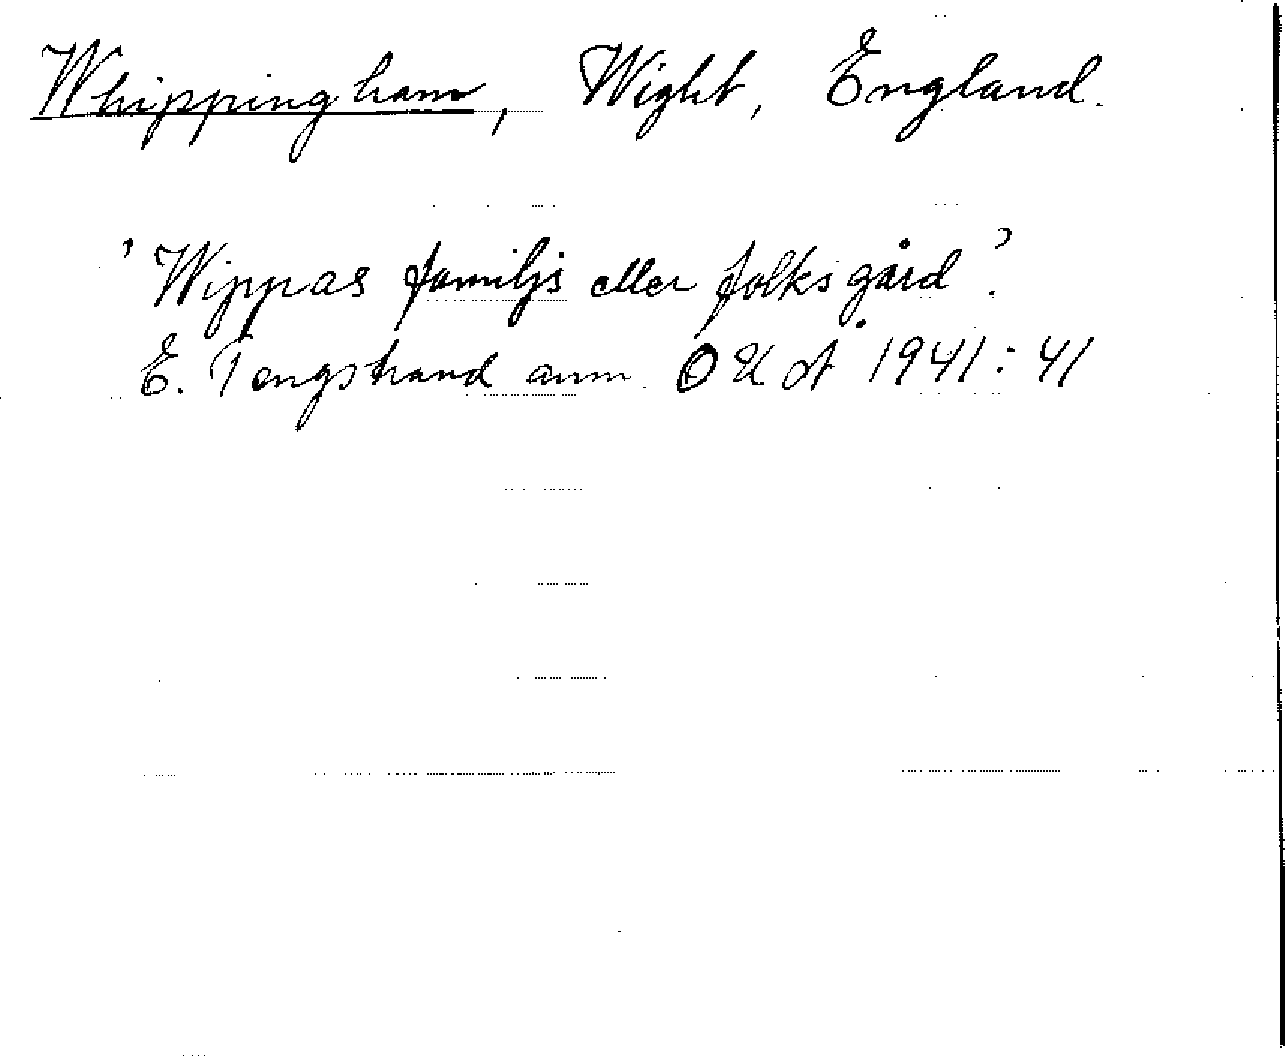 Whippingham, Wight, England.
'Wippas familjs eller folks gård'.
E. Tengstrand anm. 1941:41